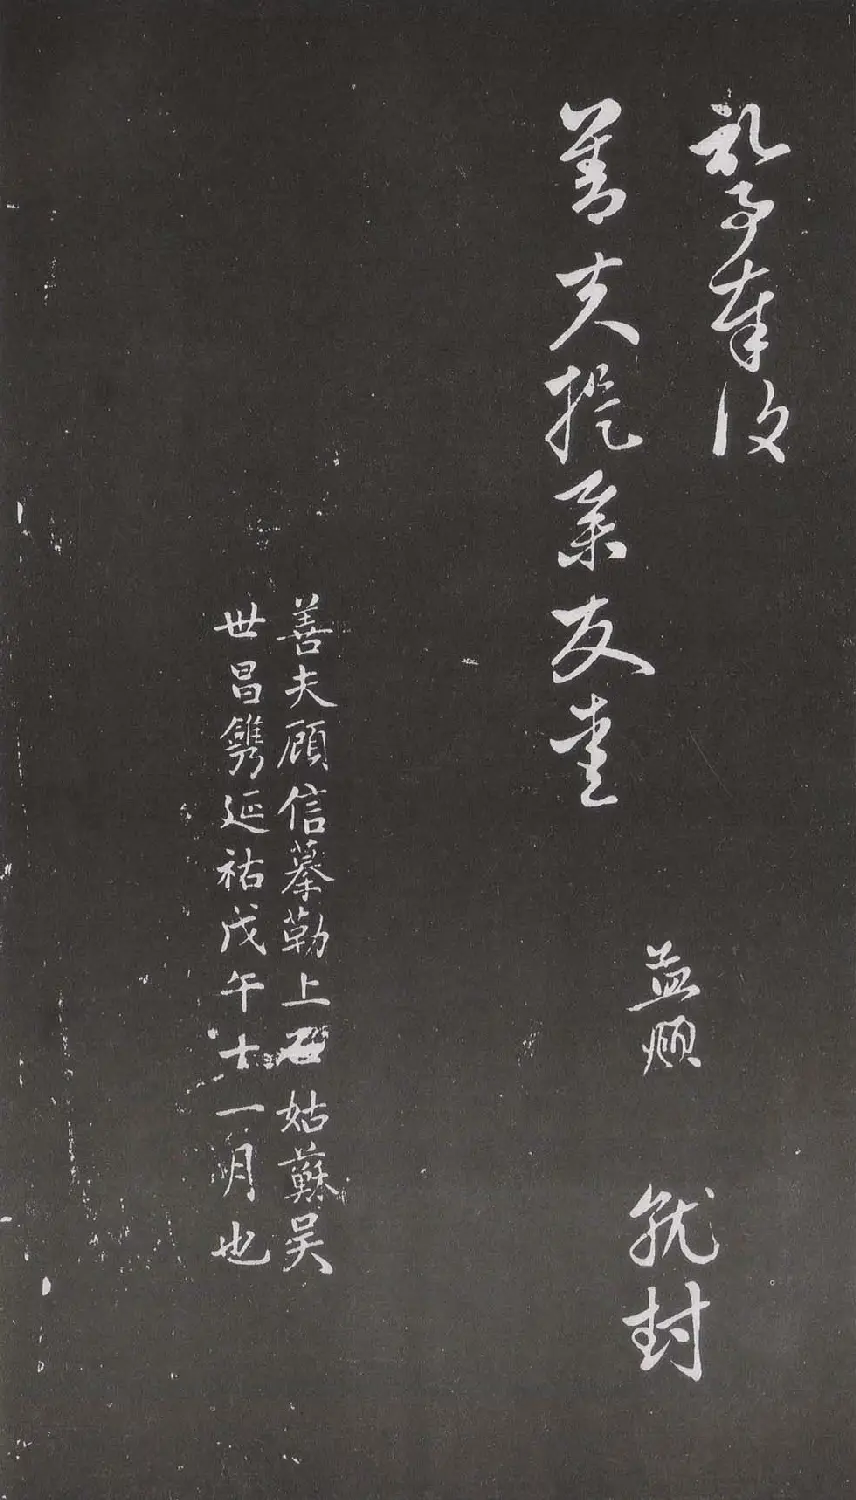 礼事奉復
善夫提举友契
孟頫
就封
善夫顧信摹勒上石姑蘇吳
世昌鐫延祐戊午十一月也